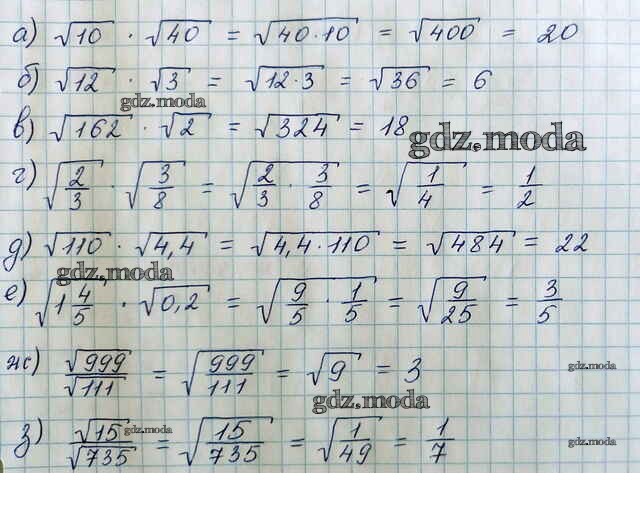 а) √10 · √40 = √40·10 = √400 = 20
б) √12 · √3 = √12·3 = √36 = 6
gdz.moda
в) √162 · √2 = √324 = 18
gdz.moda
г) √2/3 · √3/8 = √2/3 · 3/8 = √1/4 = 1/2
д) √110 · √4,4 = √4,4·110 = √484 = 22
gdz.moda
е) √1 4/5 · √0,2 = √9/5 · 1/5 = √9/25 = 3/5
ж) √999/√111 = √999/111 = √9 = 3
gdz.moda
gdz.moda
з) √15/√735 = √15/735 = √1/49 = 1/7
gdz.moda
gdz.moda